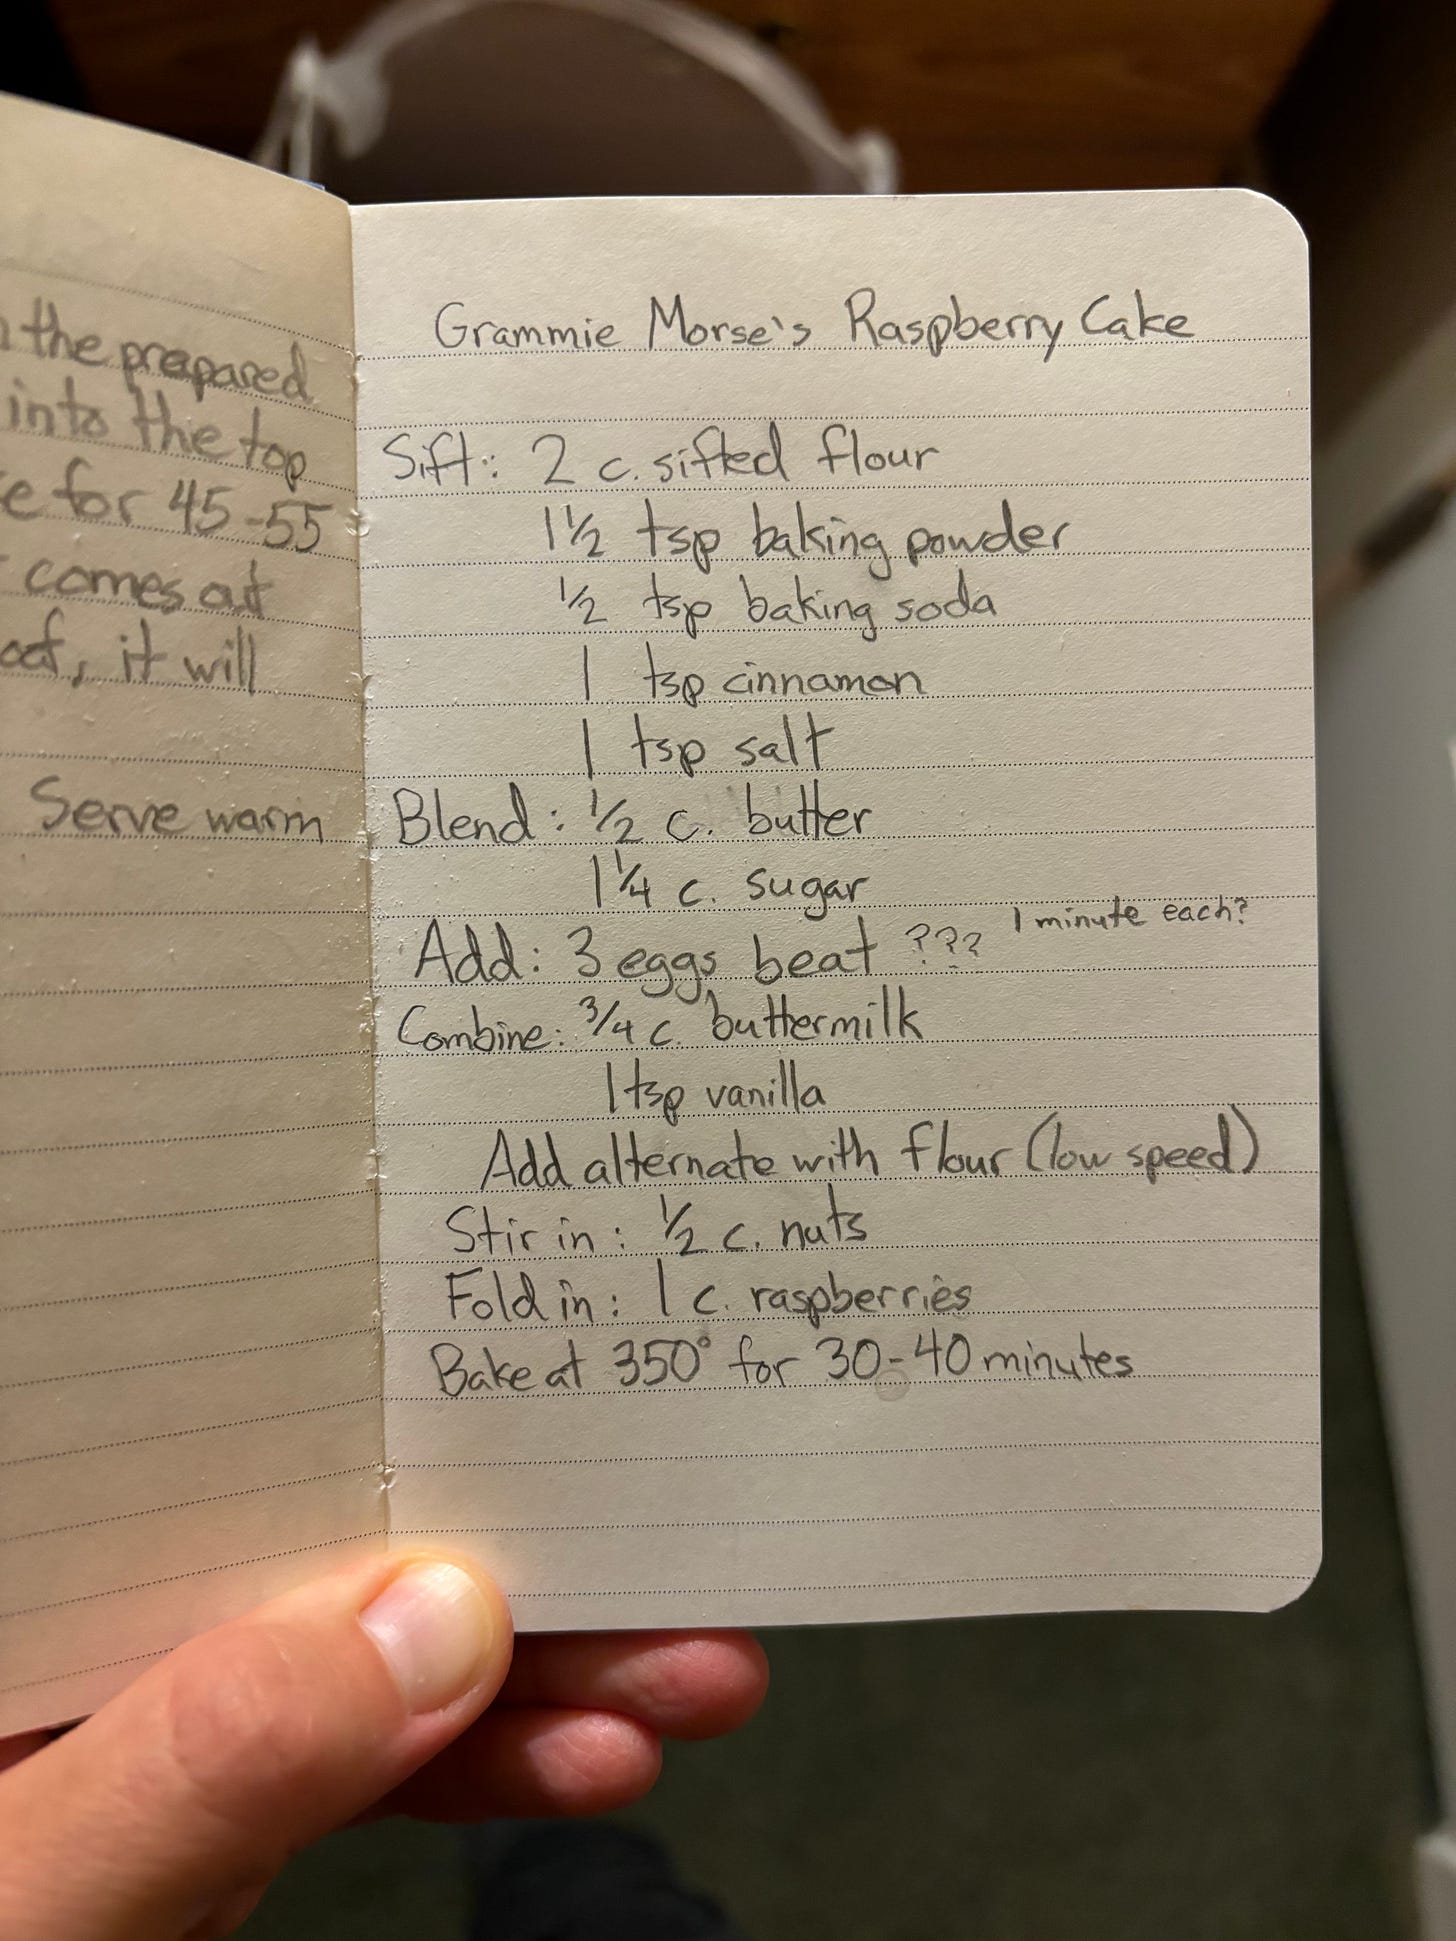 the prepared
into the top
e for 45-55
comes out
oaf, it will
Serve warm
Grammie Morse's Raspberry Cake
Sift: 2 c. sifted flour
1 1/2 tsp baking powder
1/2 tsp baking soda
1 tsp cinnamon
1 tsp salt
Blend: 1/2 c. butter
1 1/4 c. sugar
Add: 3 eggs beat ??? 1 minute each?
Combine: 3/4 c. buttermilk
1 tsp vanilla
Add alternate with flour (low speed)
Stir in: 1/2 c. nuts
Fold in: 1 c. raspberries
Bake at 350° for 30-40 minutes